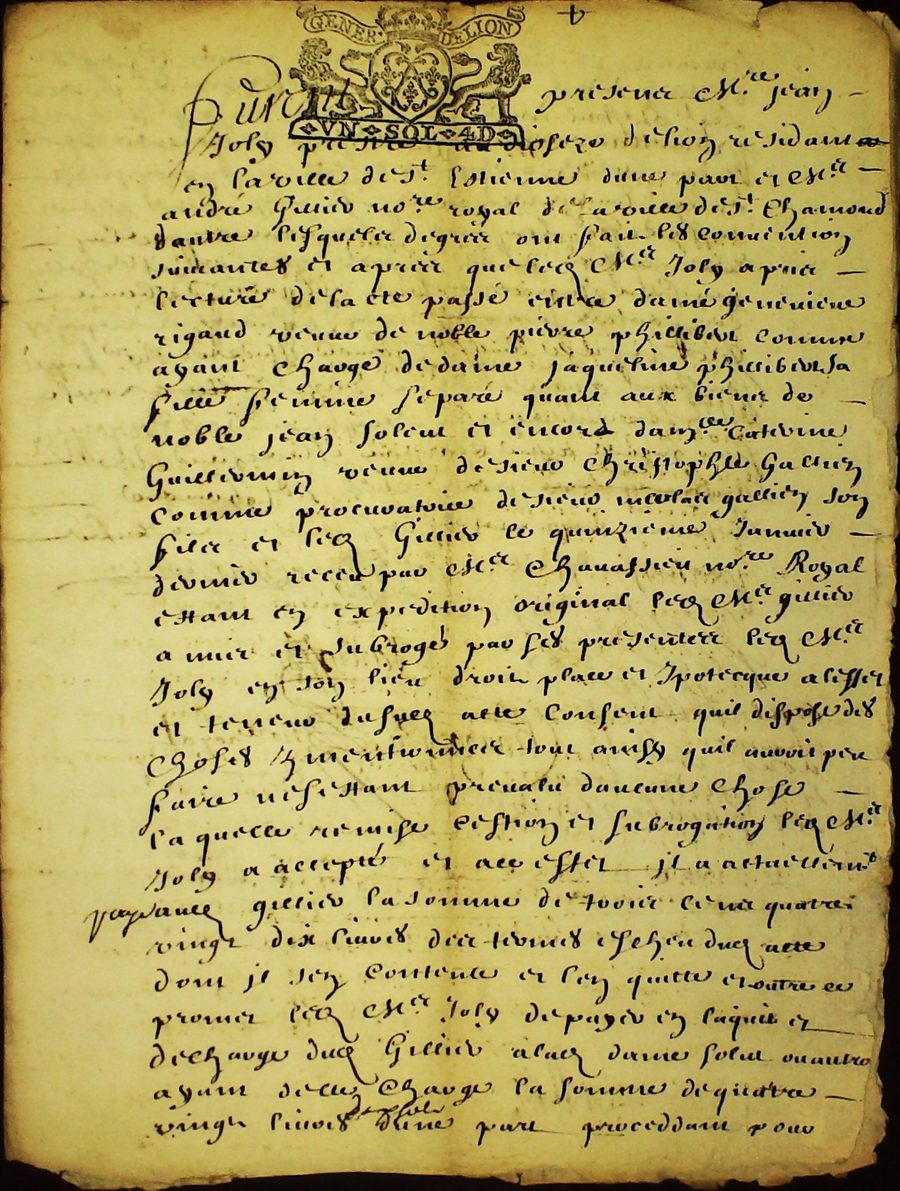 GENER· DE LION
VN SOL 4D
furent presens Mre jean
Joly prestre du diosezo de lion residant
en la ville de St Estienne dune part et Mr
andré Gillier nore royal de la ville de St Chamond
dautre lesqueles degrer ont fait les convention
suivantes et apres que led Mr Joly a prier
lecture de lacte passé entre dame genevieve
rigaud veuve de noble pierre phillibert comme
ayant charge de dame jaqueline phillibert sa
fille femme separé quant aux biens de
noble jean soleut et encore damlle Caterine
Guillermin veuve de sieur Christophle Gallien
comme procuratoire de sieur nicolas gallien son
filz et led Gillier le quinzieme Janvier
dernier receu par Mr Chavassieu nore Royal
estant en expedition original led Mr gillier
a mis et subrogé par ses presenter led Mr
Joly en son lieu droit place et Ipotecque a leffet
et teneur dusud acte consent quil dispose des
choses y mentionnees tout ainsy quil auroit peu
faire nesestant prevalu daucune chose
laquelle remise cestion et subrogation led Mr
Joly a accepté et a cet effet il a actuellemt
payé aud gillier la somme de trois cent quatre
vingt dix livres des termes escheu dud acte
dont il sen contente et len quitte et outre ce
promet led Mr Joly de payer en laquit et
decharge dud Gillier a lad dame solut ou autre
ayant delle charge la somme de quatre
vingt livres dune part proceddant pour